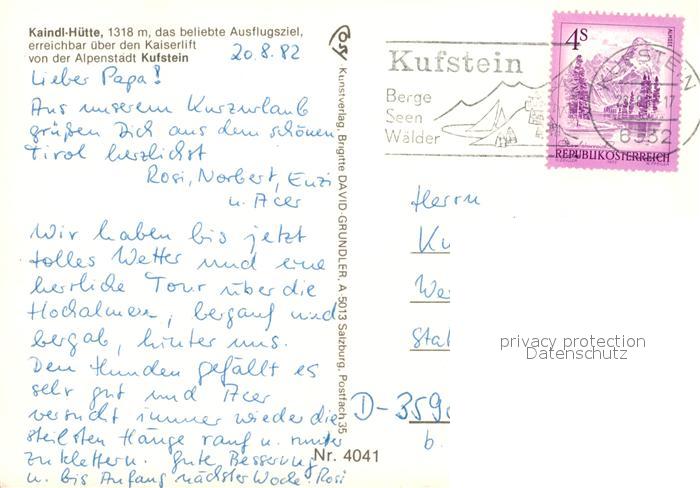 Kaindl-Hütte, 1318 m, das beliebte Ausflugsziel,
erreichbar über den Kaiserlift
von der Alpenstadt Kufstein
20.8.82
Lieber Papa!
Aus unserem Kurzurlaub
grüßen Dich aus dem schönen
Tirol herzlichst
Rosi, Norbert, Enzi
u. Acer
Wir haben bis jetzt
tolles Wetter und eine
herrliche Tour über die
Hochalmen, bergauf und
bergab, hinter uns.
Den Hunden gefällt es
sehr gut und Acer
versucht immer wieder die
steilsten Hänge rauf u. runter
zu klettern. Gute Besserung
u. bis Anfang nächster Woche Rosi
Kunstverlag, Brigitte DAVID-GRUNDLER, A-5013 Salzburg, Postfach 35
Nr. 4041
Kufstein
Berge
Seen
Wälder
4 S
REPUBLIK ÖSTERREICH
KUFSTEIN
6332
Herrn
Ku
We
Stat
D-359
b.
privacy protection
Datenschutz